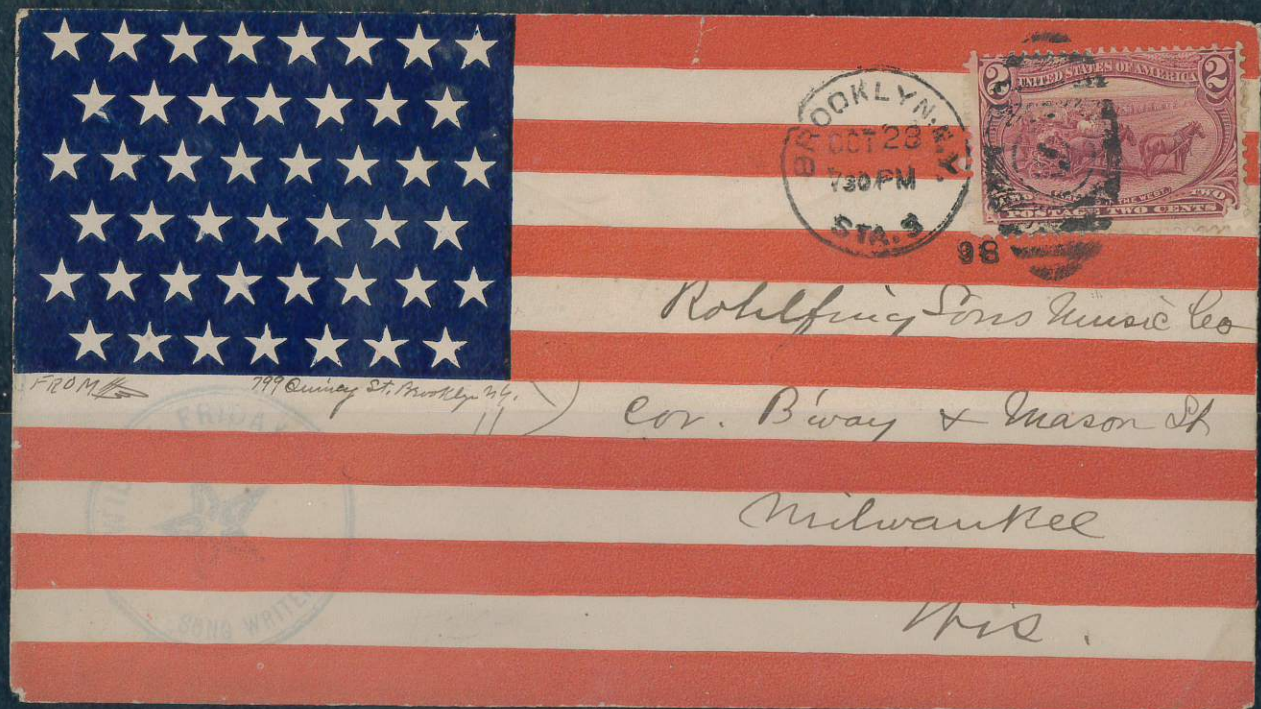 BROOKLYN. N.Y.
OCT 28
730 PM
STA. 3
98
2 UNITED STATES OF AMERICA 2
POSTAGE TWO CENTS
Rohlfing Sons Music Co
FROM 799 Quincy St. Brooklyn N.Y.
Cor. B'way & Mason St
Milwaukee
Wis.
FRIDAY
SONG WRITER